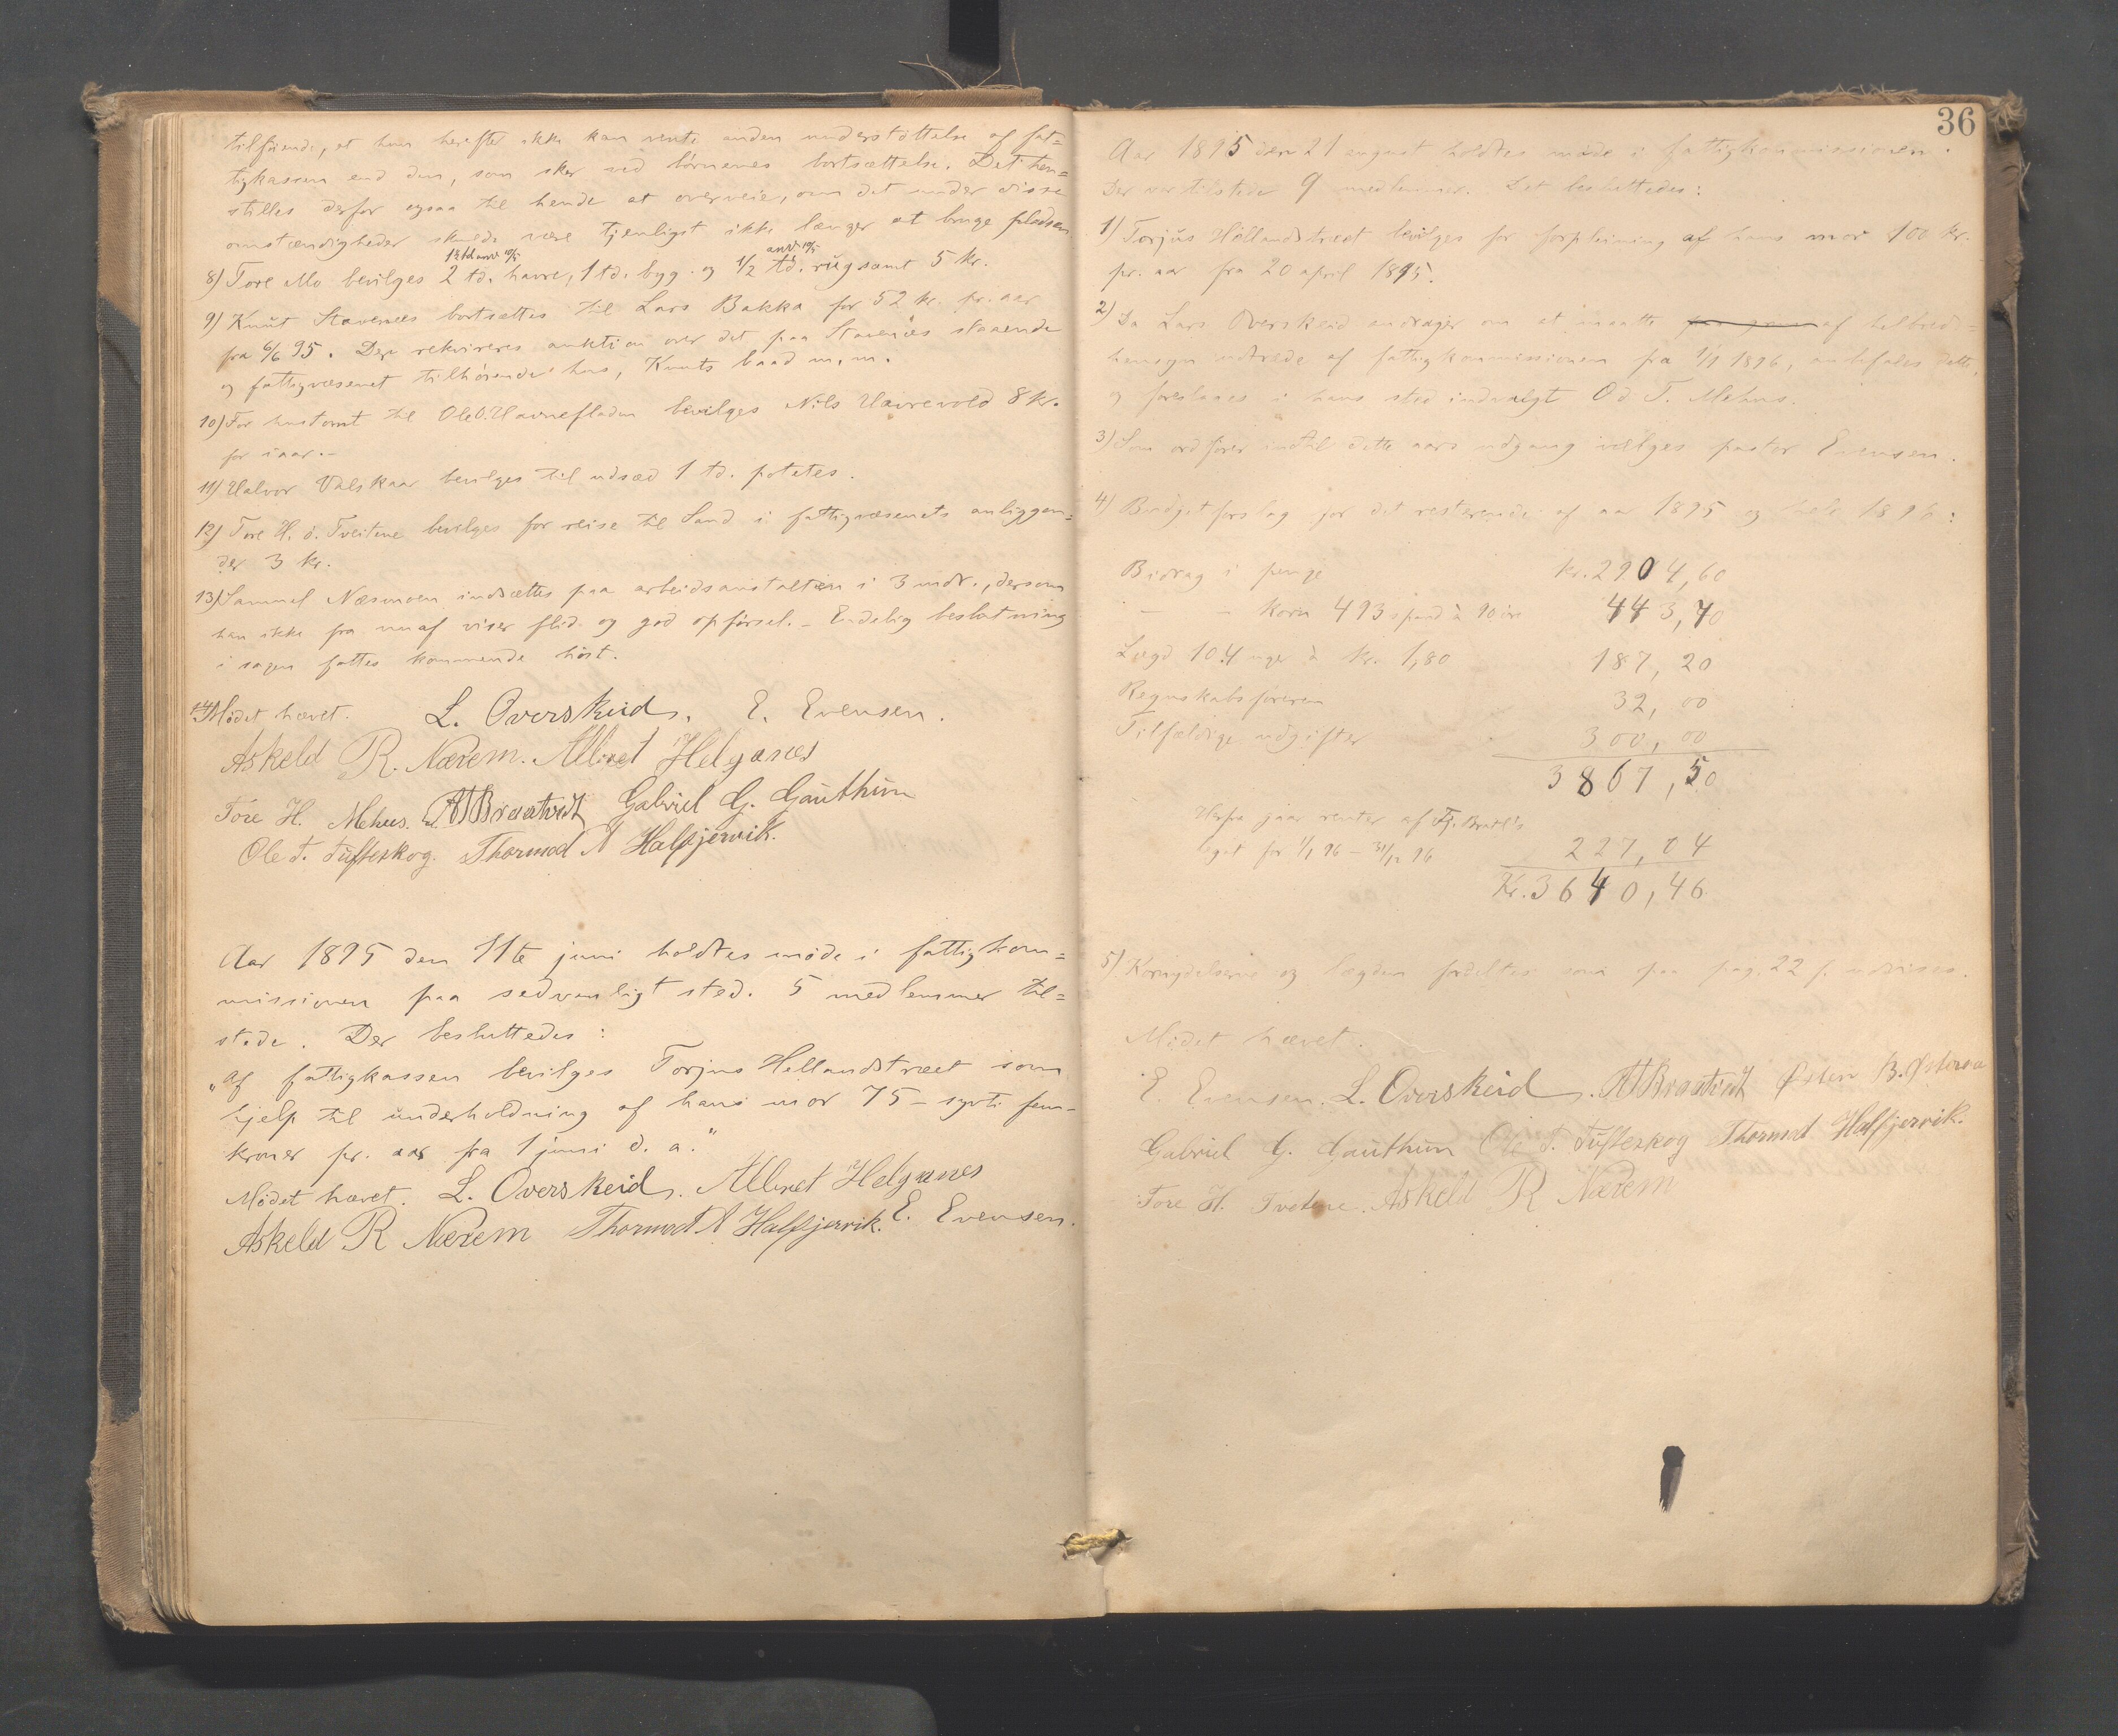 tilføiende, at hun herefter ikke kan vente anden understøttelse af fat=
tigkassen end den, som sker ved børnenes bortsættelse. Det hen=
stilles derfor ogsaa til hende at overveie, om det under disse
omstændigheder skulde være tjenligst ikke længer at bruge pladsen.
8) Tore Mo bevilges 2 td. havre, 1 td. byg og 1/2 td. rug samt 5 kr.
9) Knut Stavenæs bortsættes til Lars Bakka for 52 kr. pr. aar
fra 6/6 95. Der rekvireres auktion over det paa Stavenæs staaende
og fattigvæsenet tilhørende hus, Knuts baad m. m.
10) For hustomt til Ole O. Havnefladen bevilges Nils Havrevold 8 kr.
for iaar.-
11) Halvor Valskaar bevilges til udsæd 1 td. potetes.
12) Tore H. ø. Tveitene bevilges for reise til Sand i fattigvæsenets anliggen=
der 3 kr.
13) Samuel Næsmoen indsættes paa arbeidsanstalten i 3 mdr., dersom
han ikke fra nu af viser flid og god opførsel. - Endelig beslutning
i sagen fattes kommende høst.
14) Mødet hævet. L. Overskeid. E. Evensen.
Askeld R. Nærem. Albret Helganes
Tore H. Mehus. AT Braatveit Gabriel G. Gauthun
Ole T. Tufteskog. Thormod A Halfjervik.
Aar 1895 den 11te juni holdtes møde i fattigkom=
missionen paa sedvanligt sted. 5 medlemmer til=
stede. Der besluttedes:
"Af fattigkassen bevilges Torjus Hellandstræet som
hjelp til underholdning af hans mor 75 - sytti fem -
kroner pr. aar fra 1 juni d. a."
Mødet hævet. L. Overskeid. Albret Helganes
Askeld R Nærem Thormod A Halfjervik. E. Evensen.
36
Aar 1895 den 21 august holdtes møde i fattigkommissionen.
Der var tilstede 9 medlemmer. Det besluttedes:
1) Torjus Hellandstræet bevilges for forpleining af hans mor 100 kr.
pr. aar fra 20 april 1895.
2) Da Lars Overskeid andrager om at maatte af helbreds=
hensyn udtræde af fattigkommissionen fra 1/1 1896, anbefales dette,
og foreslaaes i hans sted indvalgt Od T. Mehus.
3) Som ordfører indtil dette aars udgang vælges pastor Evensen.
4) Budgetforslag for det resterende af aar 1895 og hele 1896:
Bidrag i penge kr. 2904,60
— - korn 493 spand à 90 øre 443,70
Lægd 104 uger à kr. 1,80 187,20
Regnskabsføreren 32,00
Tilfældige udgifter 300,00
3867,50
Herfra gaar renter af Fj. Bratl's
legat for 1/1 96 - 31/12 96 227,04
Kr. 3640,46
5) Kornydelserne og lægden fordeltes som paa pag. 22 f. udvises.
Mødet hævet.
E. Evensen. L. Overskeid. AT Braatveit Østen B. Østerea
Gabriel G. Gauthun Ole T. Tufteskog Thormod Halfjervik.
Tore H. Tveitene. Askeld R Nærem